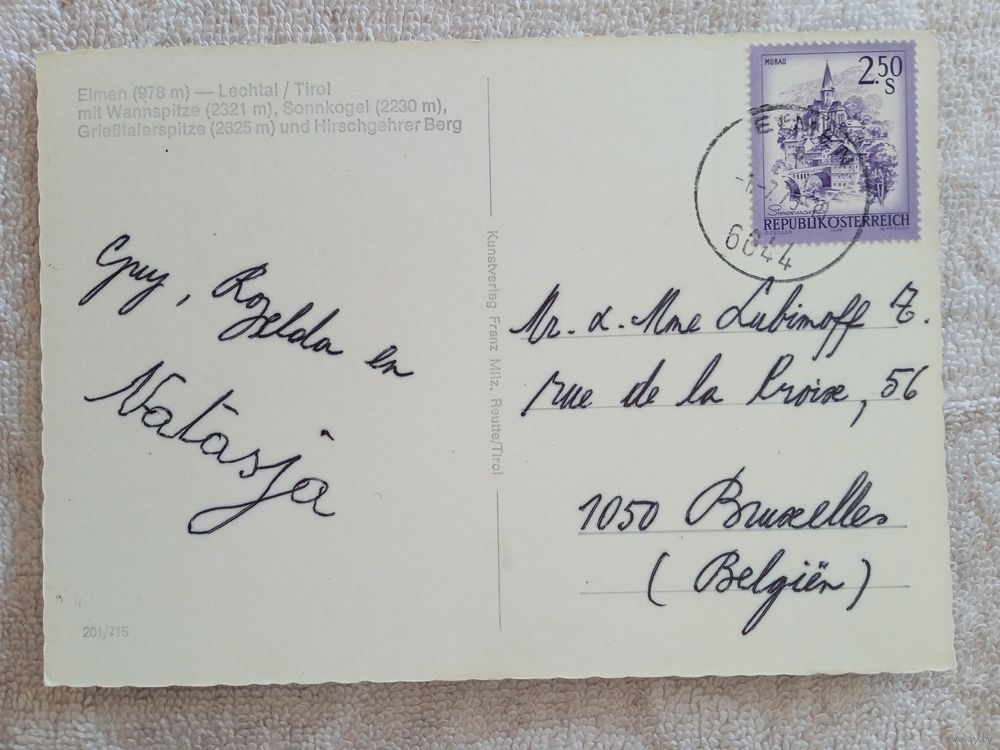 Elmen (978 m) — Lechtal / Tirol
mit Wannspitze (2321 m), Sonnkogel (2230 m),
Grießtalerspitze (2625 m) und Hirschgehrer Berg
MURAU
2.50
S
REPUBLIK ÖSTERREICH
ELMEN
6644
Guy, Rozelda en
Natasja
Kunstverlag Franz Milz, Reutte/Tirol
Mr. & Mme Lubimoff Z.
rue de la Croix, 56
1050 Bruxelles
(Belgiën)
201/715
www.ay.by